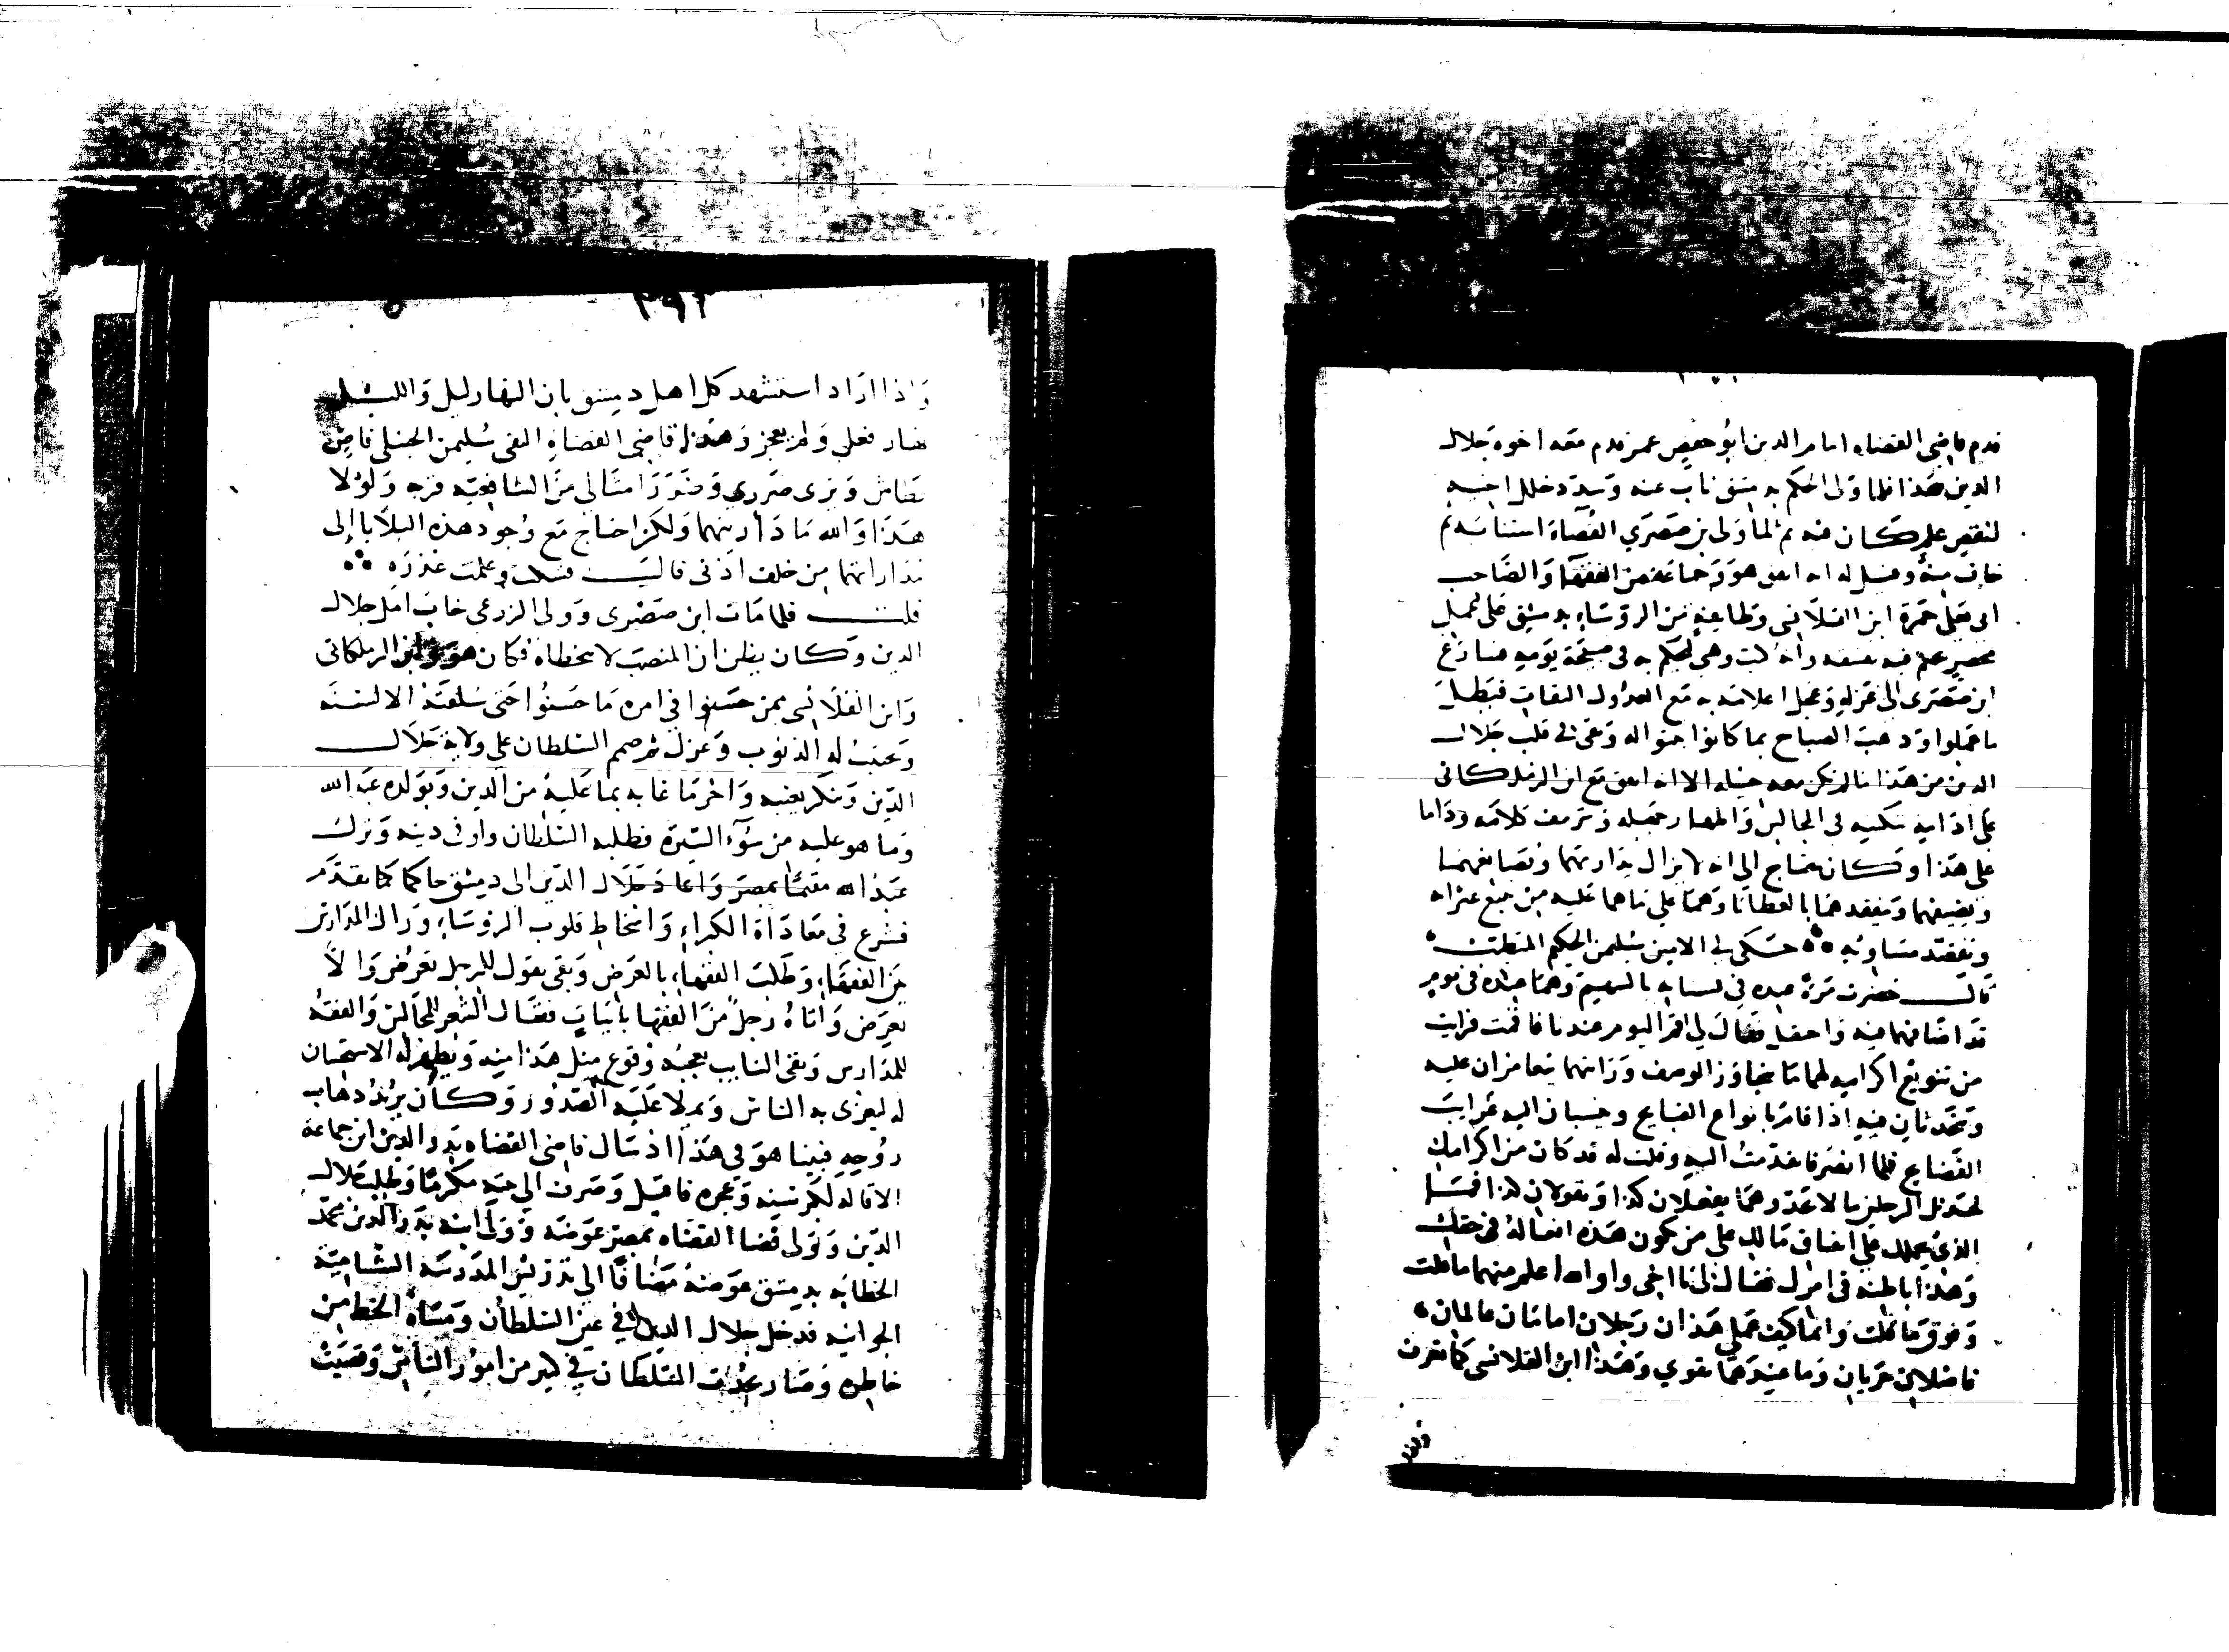 قدم قاضى القضاه امام الدين ابو حفص عمر قدم معه اخوه جلال
الدين هذا فلما ولى الحكم بدمشق ناب عنه وسد خلل اخيه
لنقص علم كان فيه ثم لما ولى بن صصرى القضاء استنابه ثم
خاف منه وقيل له انه اتفق هو وجماعة من الفقها والصاحب
ابى يعلى حمزة ابن القلانسى وطايفة من الروساء بدمشق على عمل
محضر عليه فيه بفسقه وانه كتب وهى ليحكم به فى صبيحة يومه
ابن صصرى الى عزله وعجل اعلامه به مع العدول الثقات فبطل
ما عملوا وذهب الصباح بما كانوا له وبقى فى قلب جلال
الدين من هذا ما لم يكن معه حيله الا انه اتفق مع ابن الزملكانى
على اذايه نكيه فى المجالس والمحا وتزييف كلامه وداما
على هذا وكان يحتاج الى انه لا يزال يداريهما ويصانعهما
ويضيفهما ويتفقدهما بالعطايا وهما على ما هما عليه من تتبع عثراته
وتقصد مساويه حكى لى الامين سليمن الحكيم المتطبب
قال حضرت مرة عنده فى بستانه بالسهم وهما عنده فى يوم
قد اضافهما فيه واحتفل فقال لى اقم اليوم عندنا فاقمت فرايت
من تنويع اكرامه لهما ما يتجاوز الوصف ورايتهما يتغامزان عليه
ويتحدثان فيه اذا قام بانواع القبايح وينسبان اليه غرايب
الفضايح فلما انصرفا تقدمت اليه وقلت له قد كان من اكرامك
لهذين الرجلين ما لا يحد وهما يفعلان كذا ويقولان كذا فما
الذى يحملك على اتفاق مالك على من يكون هذه افعاله فى حقك
وهذا باطنه فى امرك فقال لى يا اخى والله اعلم منهما ما قلت
وفوق ما قلت وانما كيف عملى هذان رجلان امامان عالمان
فاضلان جريان وما عندهما تقوى وهذا ابن القلانسى كما تعرف
واذا
٢٩٢
واذا اراد استشهد كل اهل دمشق بان النهار ليل والليل
نهار فعل ولم يعجز وهذا قاضى القضاه التقى سليمن الحنبلى قاض
بطاش ويرى ضررى وضرر امثالى من الشافعيه قربه ولولا
هذا والله ما داريتهما ولكن احتاج مع وجود هذه البلايا الى
مداراتهما من خلف اذنى قال فسكت وعلمت عذره
قلت فلما مات ابن صصرى وولى الزرعى خاب امل جلال
الدين وكان يظن ان المنصب لا يخطاه فكان هو وابن الزملكانى
وابن القلانسى ممن حسنوا فى امره ما حسنوا حتى سلقته الالسنه
وتجنت له الذنوب وعزل ثم صمم السلطان على ولاية جلال
الدين وتنكر بعيبه واخر ما عابه بما عليه من الدين وبولده عبد الله
وما هو عليه من سوء السيرة فطلبه السلطان واوفى دينه وترك
عبد الله مقيما بمصر واعاد جلال الدين الى دمشق حاكما كما تقدم
فشرع فى معاداة الكبراء وانحاط قلوب الروساء وزال المدارس
عن الفقهاء وطلب الفقهاء بالعرض وبقى يقول للرجل تعرض والا
تعرض واتاه رجل من الفقها بابيات فقال الشعر للمجالس والفقه
للمدارس وبقى النايب يعجبه وقوع مثل هذا منه ويظهر له الاستحسان
له ليغرى به الناس ويملا عليه الصدور وكان يريد ذهاب
روحه فبينا هو فى هذا اذ سال قاضى القضاه بدر الدين ابن جماعه
الاقاله لكبر سنه وعجزه فاقيل وصرف الى بيته مكرما وطلب جلال
الدين وولى قضا القضاه بمصر عوضه وولى ابنه بدر الدين محمد
الخطابه بدمشق عوضه مضافا الى تدريس المدرسه الشاميه
الجوانيه فدخل جلال الدين فى عين السلطان ومساة الخط من
خاطره وصار يحدث السلطان فى كثير من امور الناس وقضيت